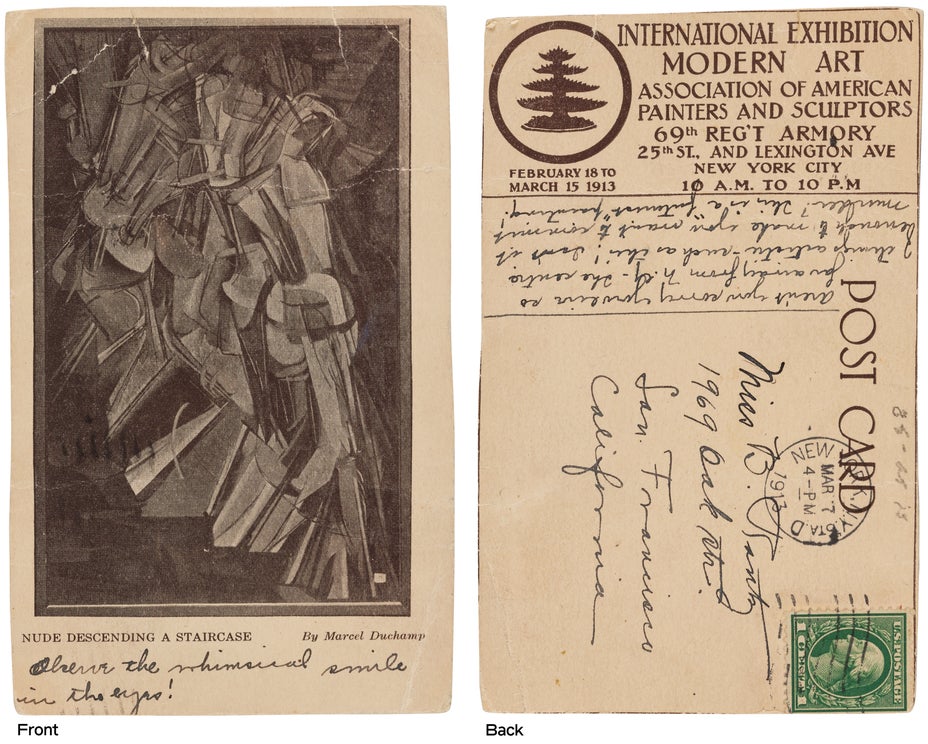 NUDE DESCENDING A STAIRCASE By Marcel Duchamp
Observe the whimsical smile
in the eyes!
Front
INTERNATIONAL EXHIBITION
MODERN ART
ASSOCIATION OF AMERICAN
PAINTERS AND SCULPTORS
69th REG'T ARMORY
25th ST., AND LEXINGTON AVE
NEW YORK CITY
FEBRUARY 18 TO
MARCH 15 1913
10 A.M. TO 10 P.M
Aren't you sorry you live so
far away from N.Y. - the centre
of things artistic - such as this! Isn't it
enough to make you want to commit
murder? This is a "futurist" painting!
POST CARD
Miss B.
1969 Oak Str.
San Francisco
California
NEW YORK, N.Y. STA. D
MAR 7
4-PM
1913
U.S. POSTAGE
1 CENT 1
Back